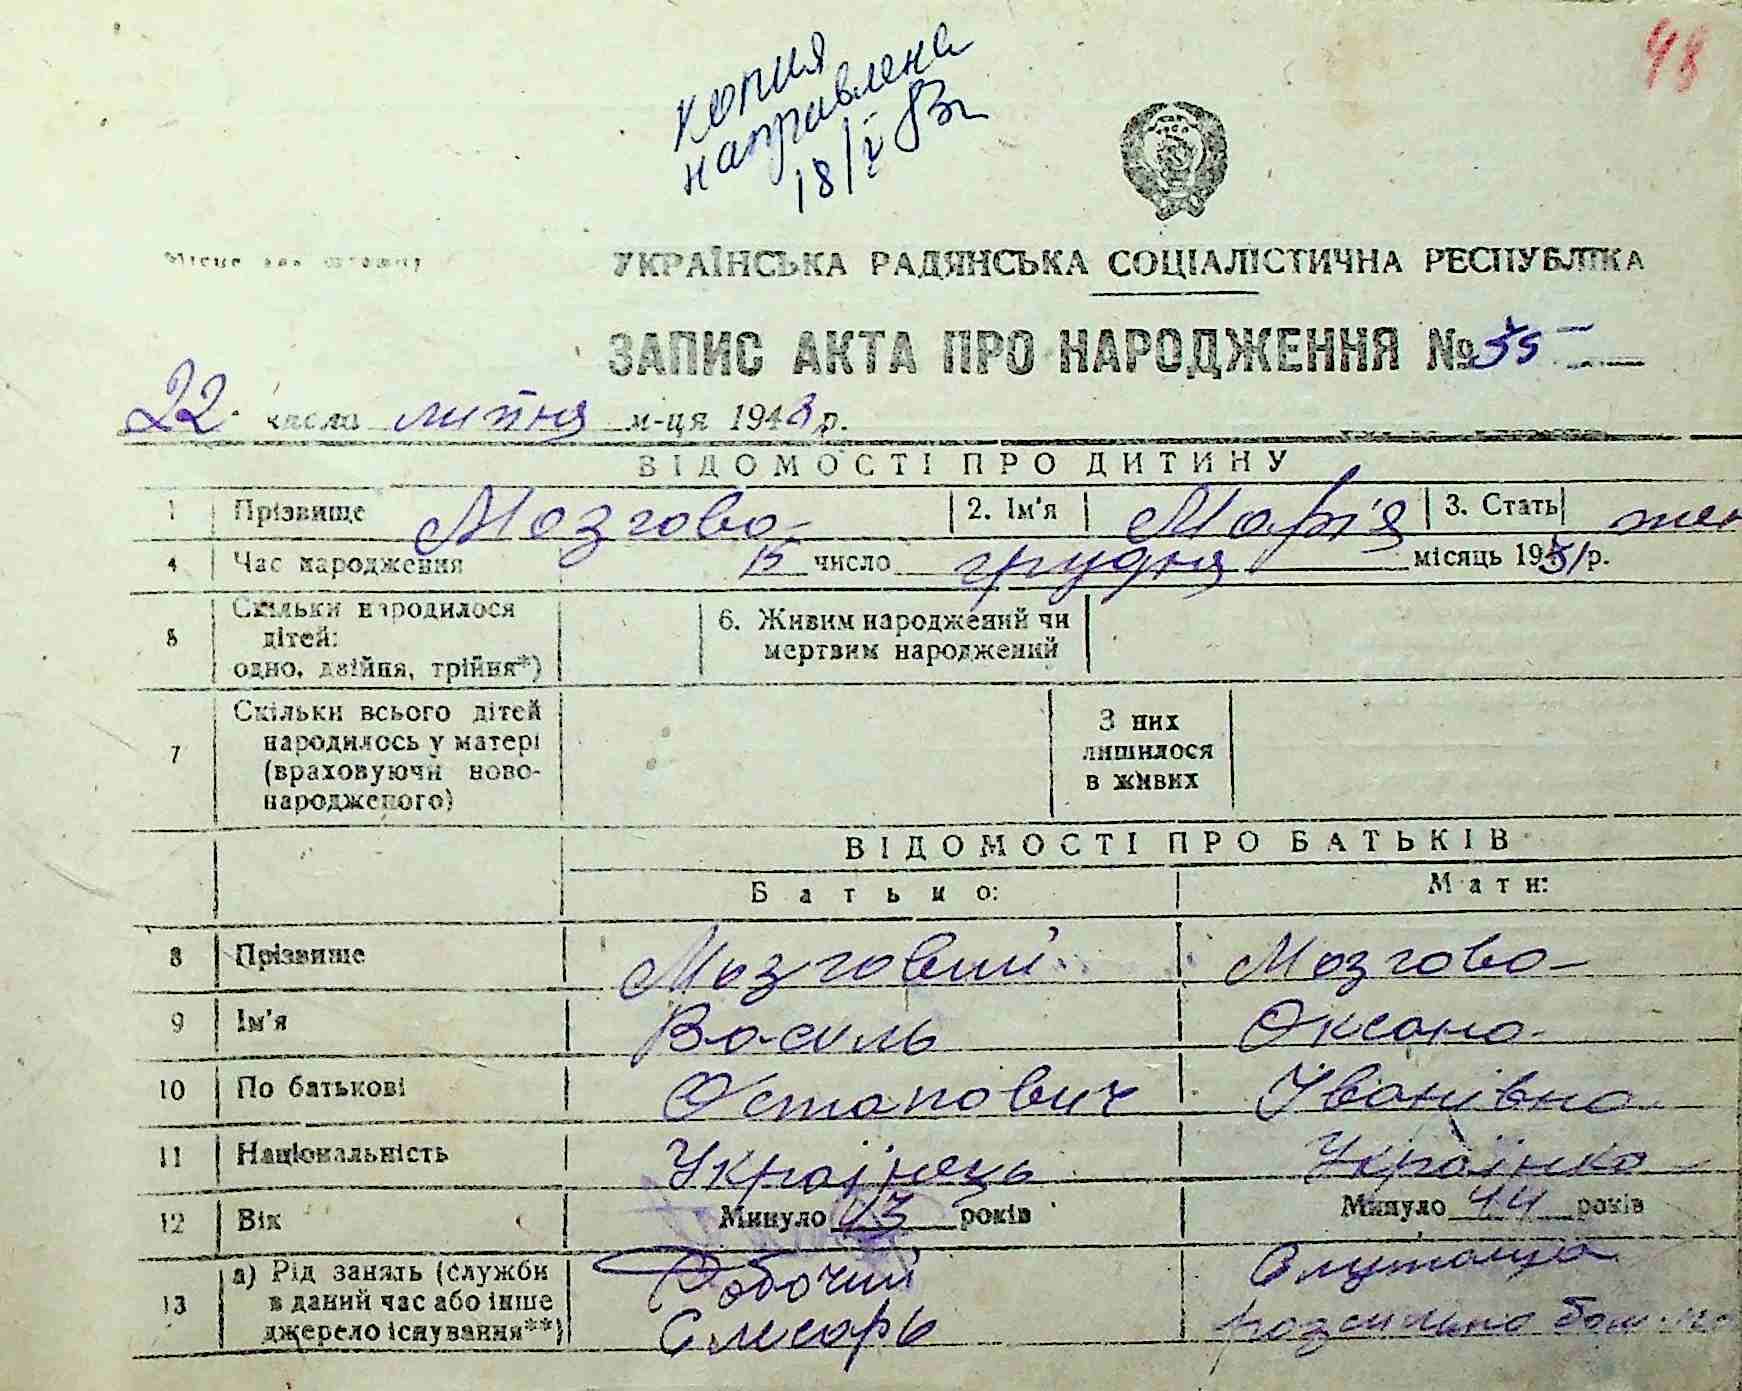 48
копия
направлена
18/V 83г
Місце для штампу
УКРАЇНСЬКА РАДЯНСЬКА СОЦІАЛІСТИЧНА РЕСПУБЛІКА
ЗАПИС АКТА ПРО НАРОДЖЕННЯ № 35
22 числа липня м-ця 1943 р.
ВІДОМОСТІ ПРО ДИТИНУ
1 Прізвище Мозгова 2. Ім'я Марія 3. Стать жен
4 Час народження 15 число грудня місяць 19 р.
5 Скільки народилося
дітей:
одно, двійня, трійня*)
6. Живим народжений чи
мертвим народжений
7 Скільки всього дітей
народилось у матері
(враховуючи ново-
народженого)
З них
лишилося
в живих
ВІДОМОСТІ ПРО БАТЬКІВ
Батько: Мати:
8 Прізвище Мозговий Мозгова
9 Ім'я Василь Оксана
10 По батькові Остапович Іванівна
11 Національність Українець Українка
12 Вік Минуло 43 років Минуло 44 років
13 а) Рід занять (служби
в даний час або інше
джерело існування**)
Робочий
Слесарь
Служаща